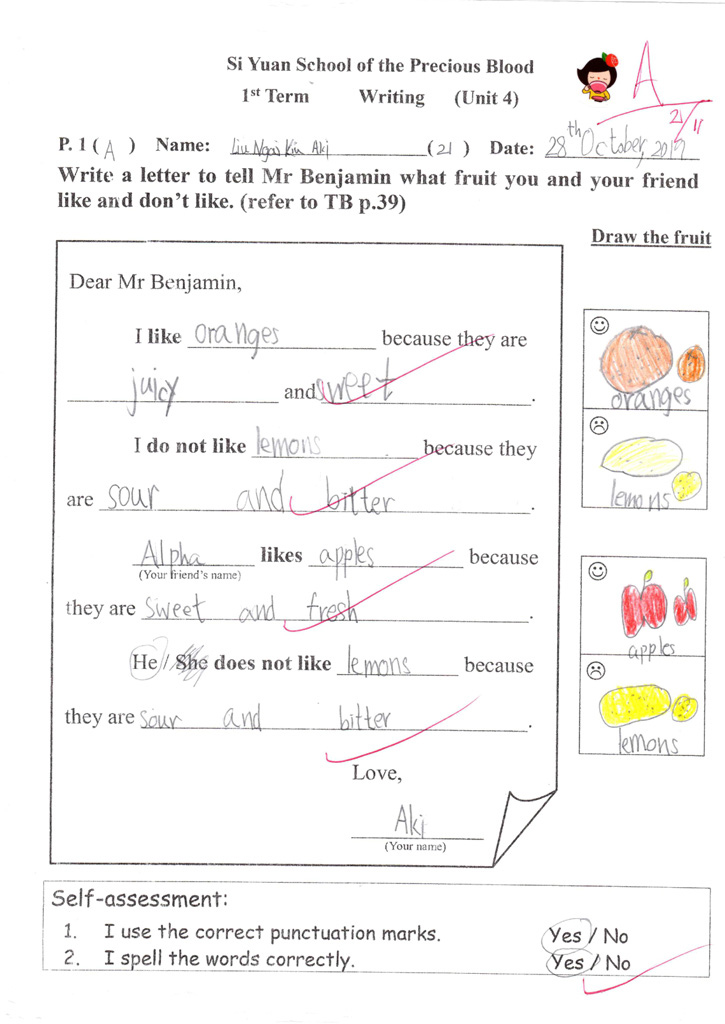 Si Yuan School of the Precious Blood
1st Term Writing (Unit 4)
A
21/11
P. 1 ( A ) Name: Liu Ngai Kiu Aki ( 21 ) Date: 28th October, 2019
Write a letter to tell Mr Benjamin what fruit you and your friend
like and don't like. (refer to TB p.39)
Draw the fruit
Dear Mr Benjamin,
I like oranges because they are
juicy and sweet.
I do not like lemons because they
are sour and bitter.
Alpha likes apples because
(Your friend's name)
they are sweet and fresh.
He / She does not like lemons because
they are sour and bitter.
Love,
Aki
(Your name)
oranges
lemons
apples
lemons
Self-assessment:
1. I use the correct punctuation marks. Yes / No
2. I spell the words correctly. Yes / No